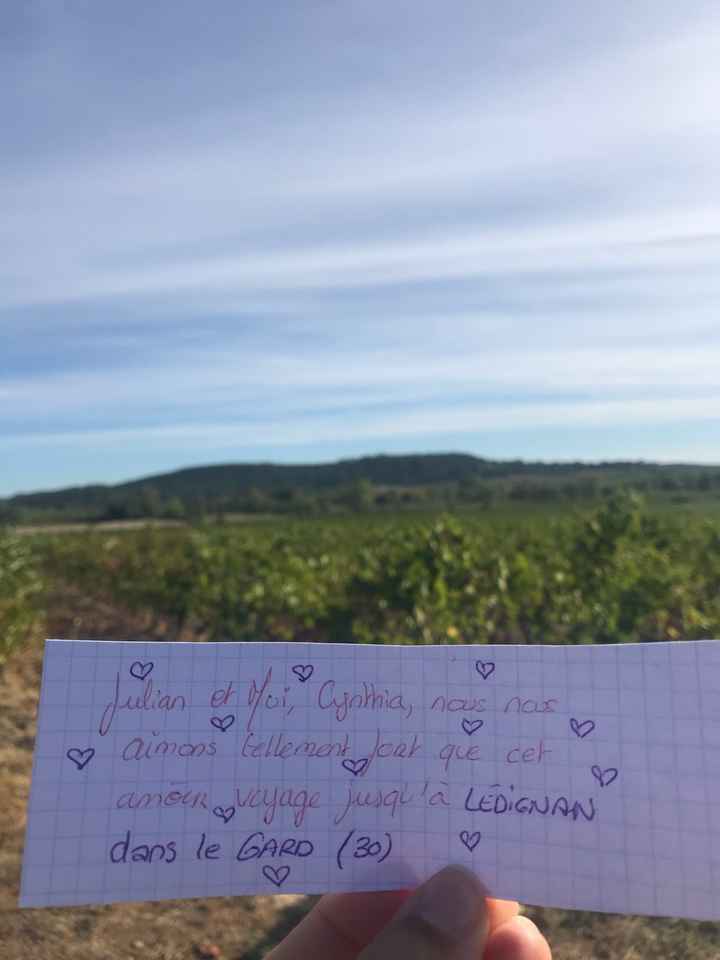 Julian et Moi, Cynthia, nous nous
aimons tellement fort que cet
amour voyage jusqu'à LÉDIGNAN
dans le GARD (30)